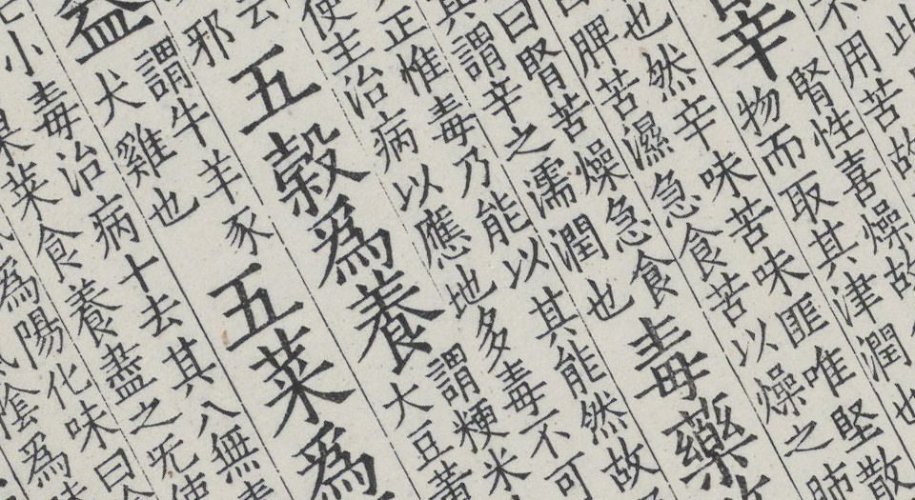 此
不用苦故
辛腎性喜燥故
物而取其津潤也
也然辛味苦味匪唯堅散
脾苦濕急食苦以燥之肺
曰腎苦燥急食
其謂辛之濡潤也毒藥
正惟毒乃能以其能然故
使主治病以應地多毒不可
云
邪五穀為養謂粳米
大豆黃
益謂牛羊豕
犬雞也五菜為
小毒治病十去其八無毒
果菜食養盡之无使
為陽化味曰
陰為味